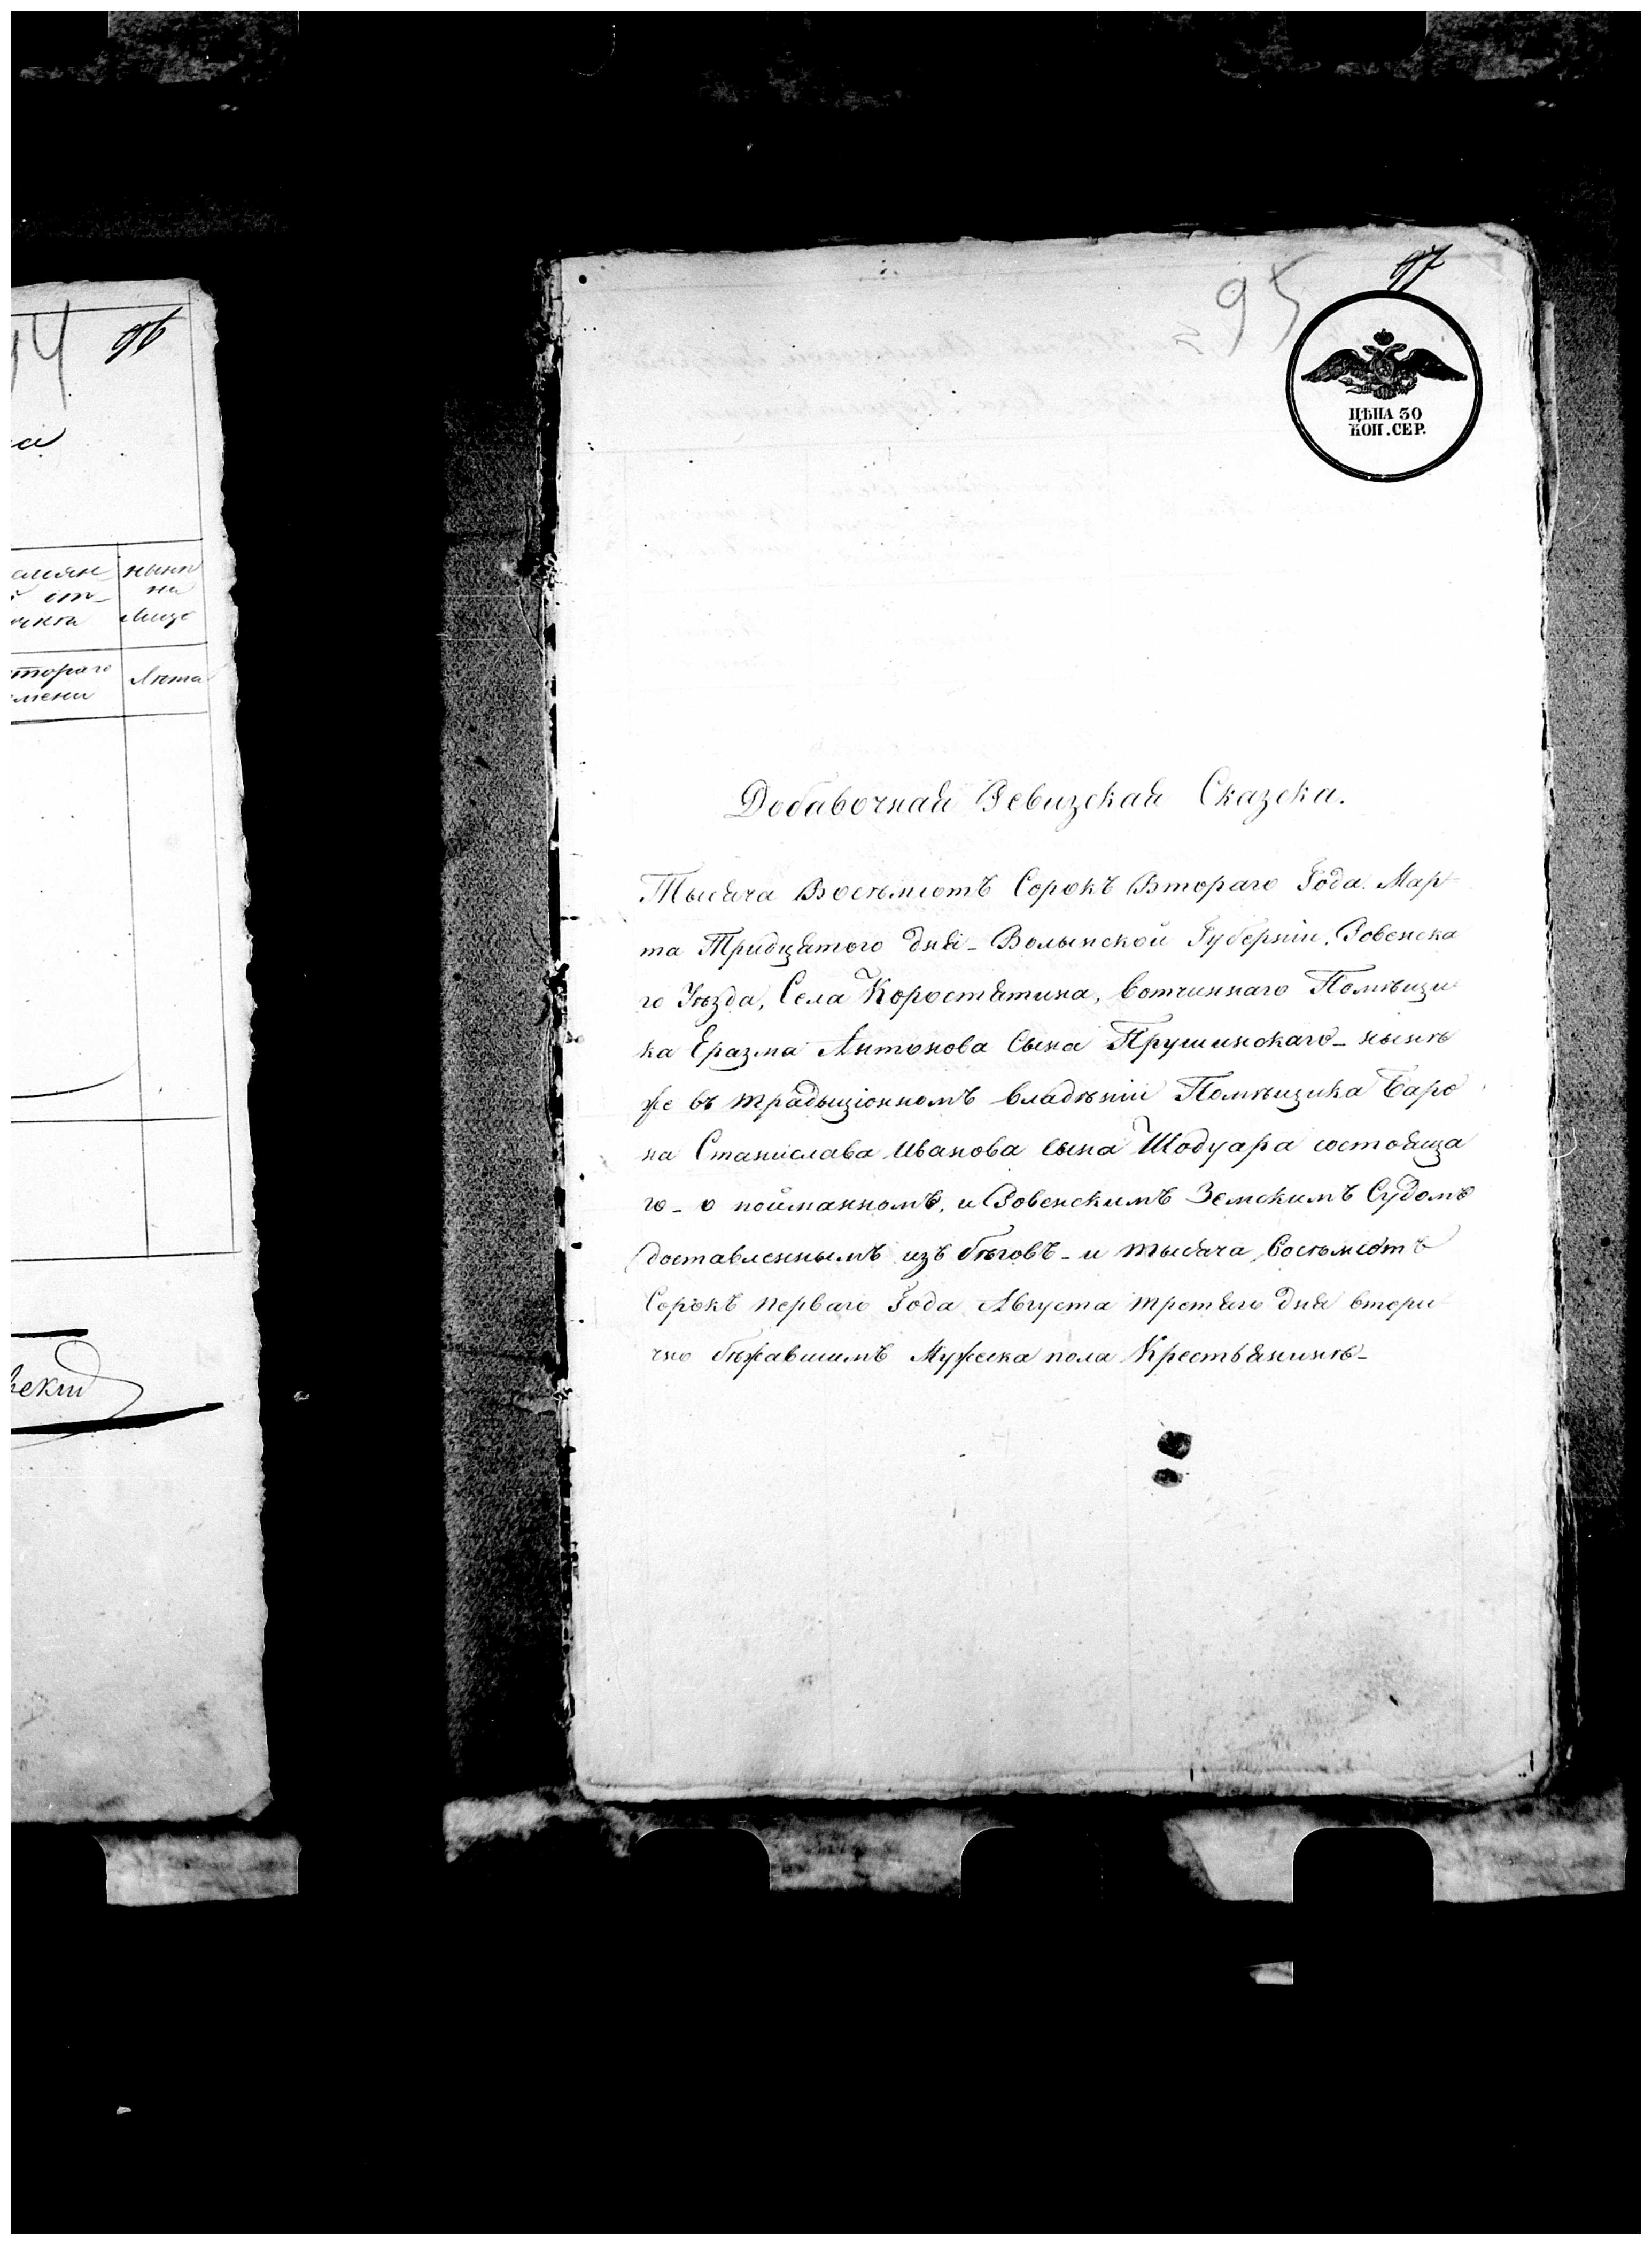 94
96
а
амян
ной от
лучка
нынѣ
на
лицо
втораго
имени
Лѣта
вскій
95
97
ЦѢНА 30
КОП. СЕР.
Добавочная Ревизская Сказска.
Тысяча Восемьсотъ Сорокъ Втораго Года. Мар-
та Тридцятого дня - Волынской Губерніи, Ровенска
го Уѣзда, Села Коростятина, вотчиннаго Помѣщи-
ка Еразма Антонова Сына Прушинскаго - нынѣ
же въ традыціонномъ владѣніи Помѣщика Баро
на Станислава Иванова сына Шодуара состояща
го - о пойманномъ, и Ровенскимъ Земскимъ Судомъ
доставленнымъ изъ бѣговъ - и тысяча восемьсотъ
Сорокъ перваго Года Августа третяго дня втори-
чно бѣжавшимъ Мужеска пола Крестьянинѣ -